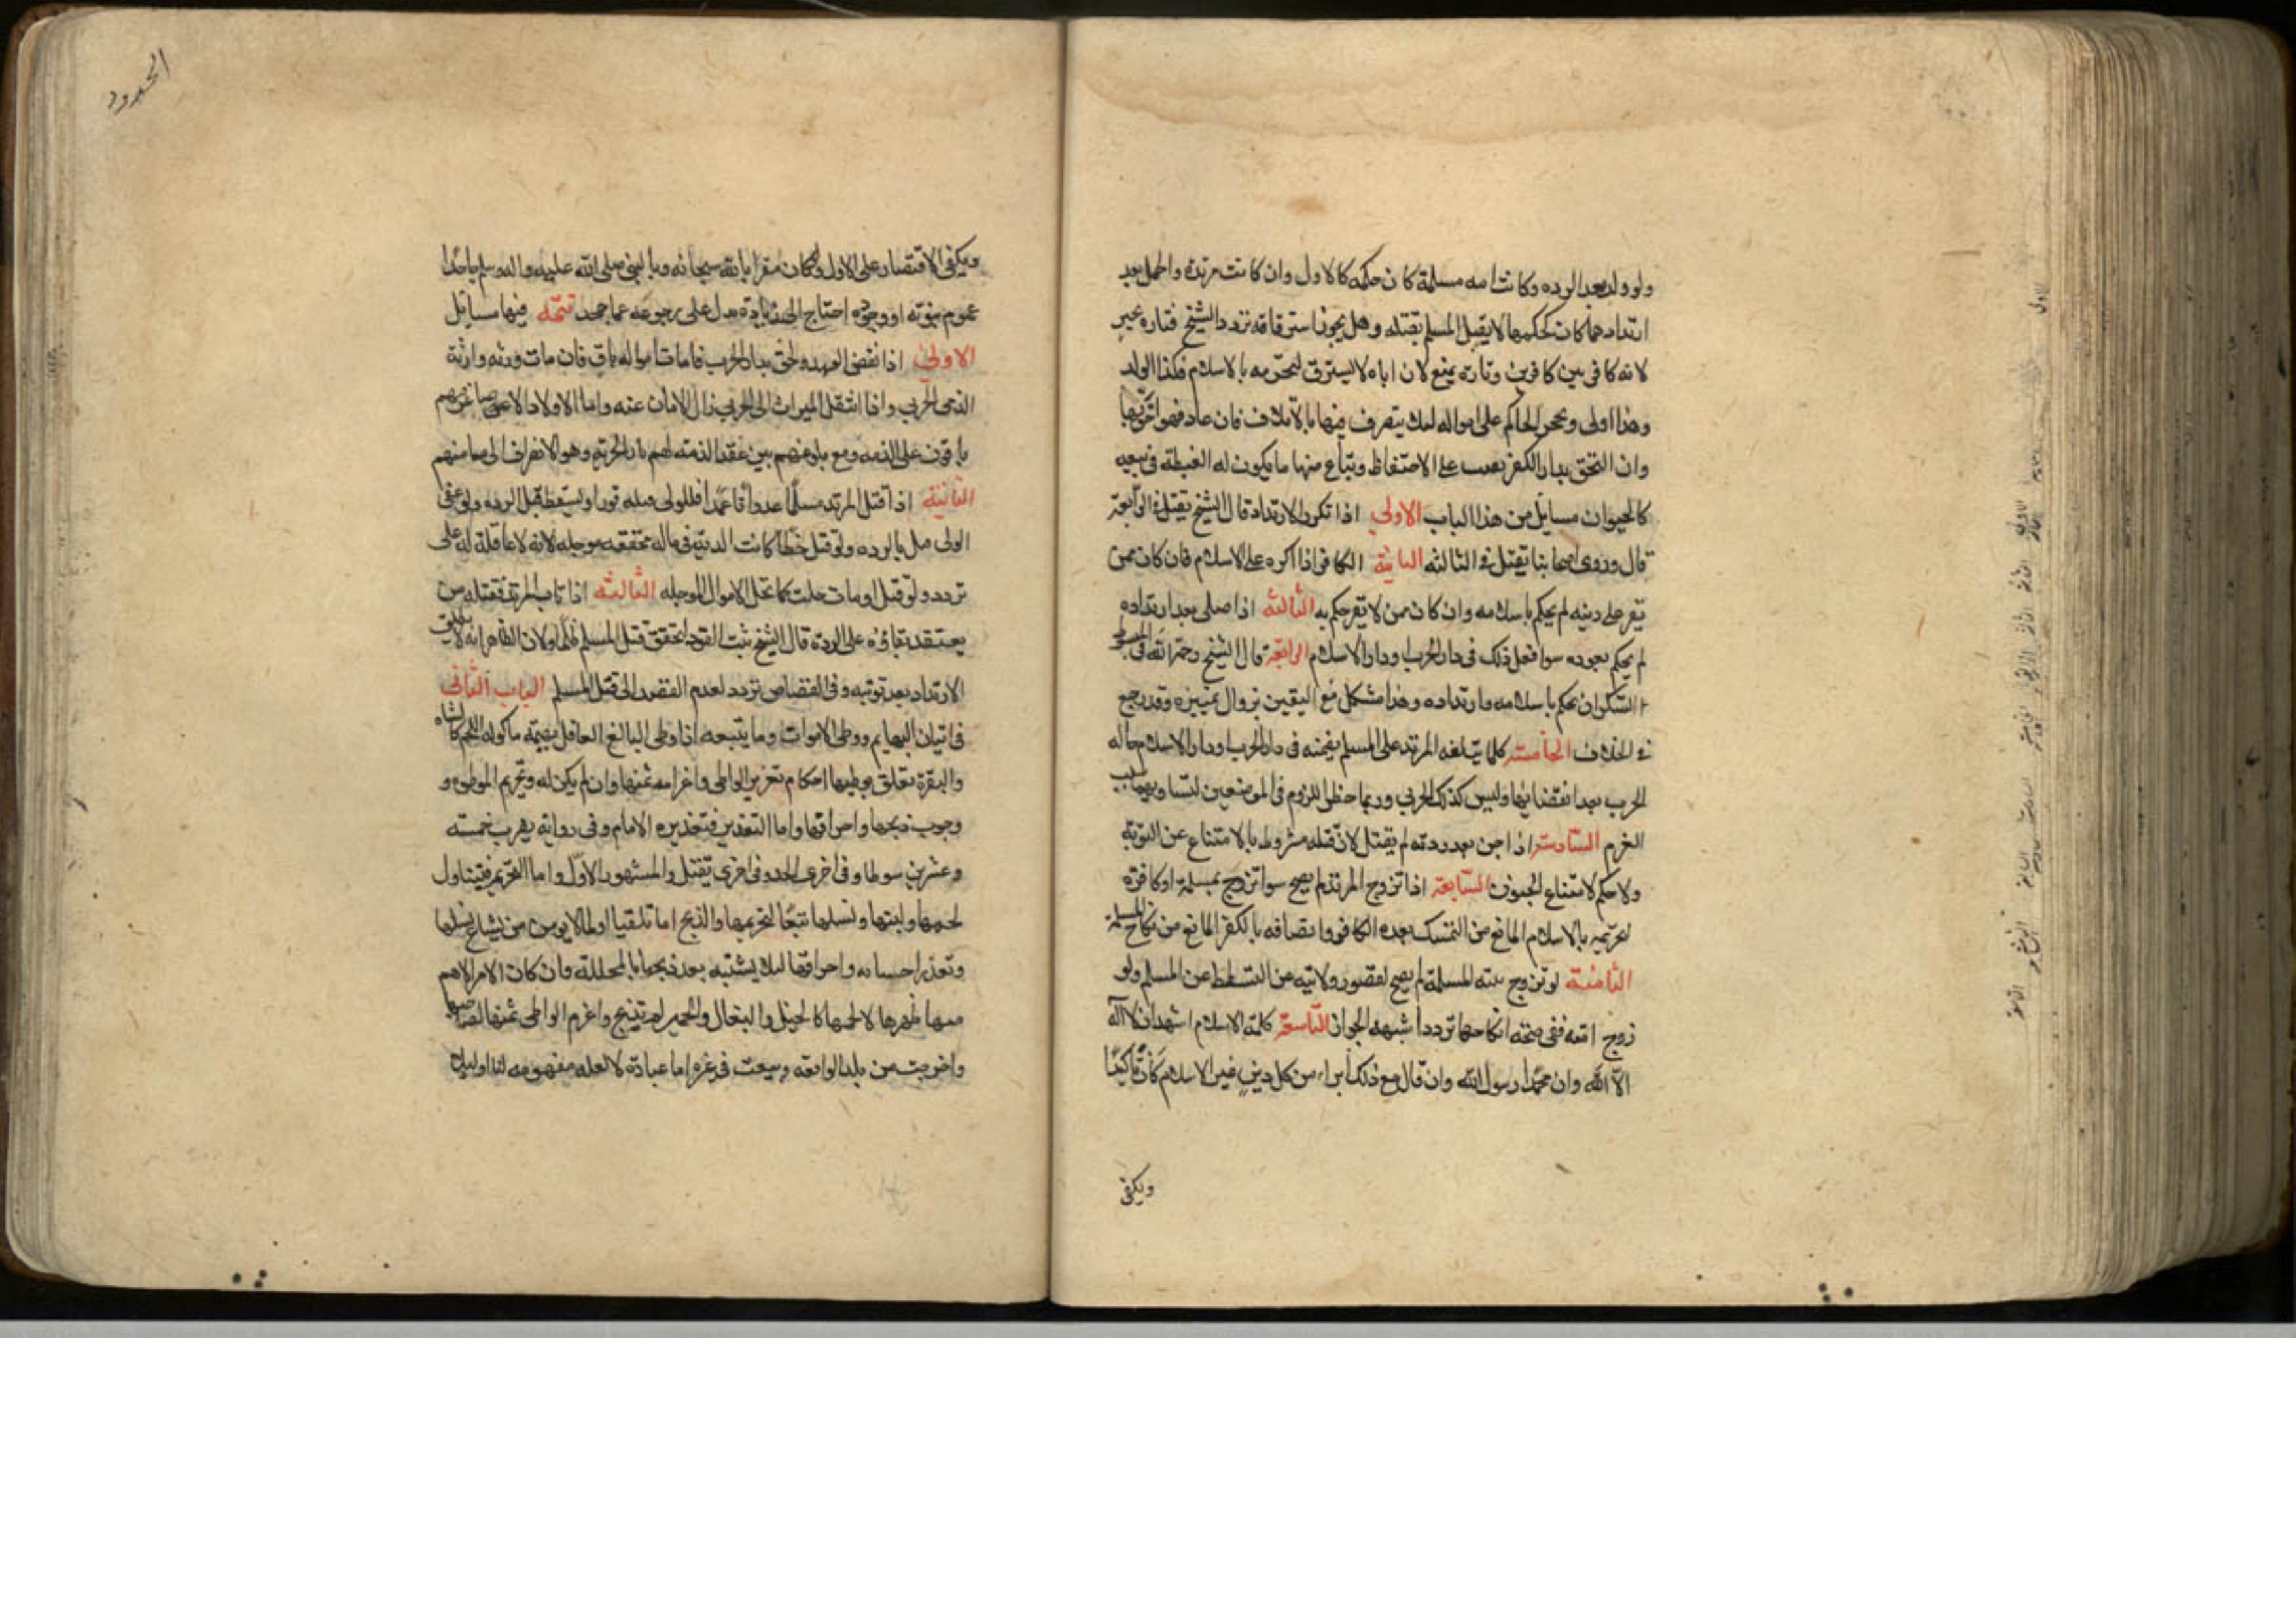 ولو ولد بعد الرده وكانت امه مسلمة كان حكمه كالاول وان كانت مرتدة والحمل بعد
ارتدادهما كان كحكمهما لا يقبل المسلم بقتله وهل يجوز استرقاقه تردد الشيخ فتاره يجيز
لانه كافر بين كافرين وتارة يمنع لان اباه لا يسترق لتحرمه بالاسلام فكذا الولد
وهذا اولى ويحجر الحاكم على امواله ليلا يتصرف فيها بالاتلاف فان عاد فهو احق بها
وان التحق بدار الكفر بعت على الاحتفاظ ويباع منها ما يكون له الغبطة في بيعه
كالحيوان مسايل من هذا الباب الاولى اذا تكرر الارتداد قال الشيخ يقتل في الرابعة
قال وروى اصحابنا يقتل في الثالثه الثانية الكافر اذا اكره على الاسلام فان كان ممن
يقر على دينه لم يحكم باسلامه وان كان ممن لا يقر حكم به الثالثة اذا صلى بعد ارتداده
لم يحكم بعوده سوا فعل ذلك في دار الحرب او دار الاسلام الرابعة قال الشيخ رحمه الله في المبسوط
السكران يحكم باسلامه وارتداده وهذا مشكل مع اليقين بزوال تمييزه وقد رجع
في الخلاف الخامسة كلما يتلفه المرتد على المسلم يضمنه في دار الحرب او دار الاسلام حاله
الحرب بعد انقضايها وليس كذلك الحربي وربما خطر اللزوم في الموضعين لتساويهما سبب
الغرم السادسة اذا جن بعد ردته لم يقتل لان قتله مشروط بالامتناع عن التوبة
ولا حكم لامتناع المجنون السابعة اذا تزوج المرتد لم يصح سوا تزوج بمسلمة او كافرة
لتحرمه بالاسلام المانع من التمسك بعده الكافر واتصافه بالكفر المانع من نكاح المسلمة
الثامنة لو تزوج بنته المسلمة لم يصح لقصور ولايته عن التسلط عن المسلم ولو
زوج امته ففي صحته انكاحها تردد اشبهه الجواز التاسعة كلمة الاسلام اشهد ان لا اله
الا الله وان محمدا رسول الله وان قال مع ذلك ابراء من كل دين غير الاسلام كان تاكيدا
ويكفي
الحدود
ويكفي الاقتصار على الاول ولو كان مقرا بالله سبحانه وبالنبي صلى الله عليه واله وسلم جاحدا
عموم نبوته او وجوده احتاج الى زيادة تدل على رجوعه عما جحد تتمة فيها مسايل
الاولى اذا نقض العهد ولحق بدار الحرب فامان امواله باق فان مات ورثه وارثة
الذمي الحربي واذا انتقل الميراث الى الحربي زال الامان عنه واما الاولاد الاصاغر فهم
باقون على الذمه ومع بلوغهم بين عقد الذمة لهم بادا الجزية وهو الانصراف الى مامنهم
الثانية اذا قتل المرتد مسلما عدوانا عمدا فللولى قتله قودا ويسقط قتل الرده ولو عفى
الولى قتل بالرده ولو قتل خطا كانت الدية في ماله مخففه موجله لانه لا عاقلة له على
تردد ولو قتل او مات حلت كما تحل الاموال الموجله الثالثه اذا تاب المرتد فقتله من
يعتقد بقاوه على الردة قال الشيخ ثبت القود لتحقق قتل المسلم ظلما ولان الظاهر انه لا يطلق
الارتداد بعد توبته وفي القصاص تردد لعدم القصد الى قتل المسلم الباب الثاني
في اتيان البهايم ووطى الاموات وما يتبعه اذا وطى البالغ العاقل بهيمة ماكولة اللحم كالشاه
والبقرة تعلق بوطيها احكام تعزير الواطى واغرامه ثمنها وان لم يكن له وتحريم الموطوه و
وجوب ذبحها واحراقها واما التعزير فتقديره الامام وفى رواية يضرب خمسة
وعشرين سوطا وفى اخرى الحد وفى اخرى يقتل والمشهور الاول واما التحريم فيتناول
لحمها ولبنها ونسلها تبعا لتحريمها والذبح اما تلقيا او لما لا يومن من شياع نسلها
وتعذر اجتنابه واحراقها ليلا يشتبه بعد ذبحها بالمحللة وان كان الامر الاهم
منها ظهرها لا لحمها كالخيل والبغال والحمير لم تذبح واغرم الواطى ثمنها لصاحبها
واخرجت من بلد الواقعه وبيعت في غيره اما عبادة لا لعلة مفهومه لنا او ليلا